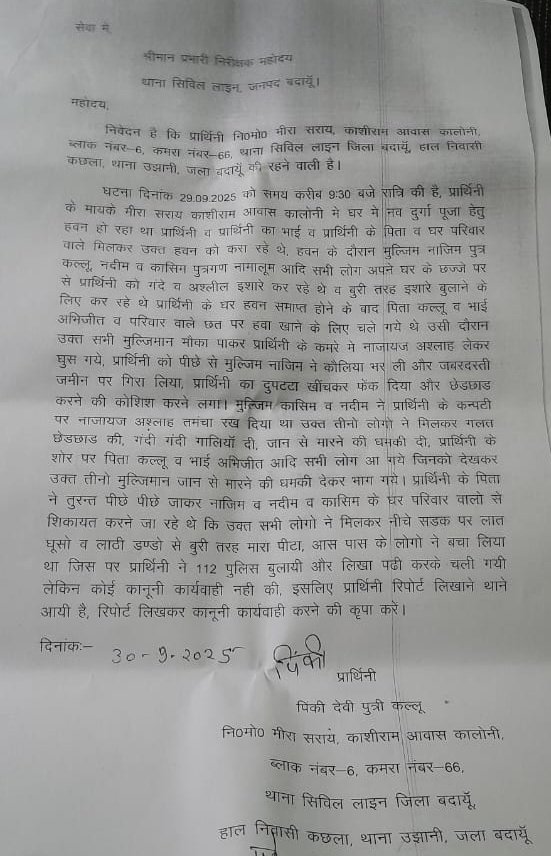 सेवा में,
श्रीमान प्रभारी निरीक्षक महोदय
थाना सिविल लाइन, जनपद बदायूँ।
महोदय,
निवेदन है कि प्रार्थिनी नि०मो० मीरा सराय, काशीराम आवास कालोनी,
ब्लाक नंबर–6, कमरा नंबर–66, थाना सिविल लाइन जिला बदायूँ, हाल निवासी
कछला, थाना उझानी, जला बदायूँ की रहने वाली है।
घटना दिनांक 29.09.2025 को समय करीब 9:30 बजे रात्रि की है, प्रार्थिनी
के मायके मीरा सराय काशीराम आवास कालोनी मे घर मे नव दुर्गा पूजा हेतु
हवन हो रहा था प्रार्थिनी व प्रार्थिनी का भाई व प्रार्थिनी के पिता व घर परिवार
वाले मिलकर उक्त हवन को करा रहे थे, हवन के दौरान मुल्जिम नाजिम पुत्र
कल्लू, नदीम व कासिम पुत्रगण नामालूम आदि सभी लोग अपने घर के छज्जे पर
से प्रार्थिनी को गंदे व अश्लील इशारे कर रहे थे व बुरी तरह इशारे बुलाने के
लिए कर रहे थे प्रार्थिनी के घर हवन समाप्त होने के बाद पिता कल्लू व भाई
अभिजीत व परिवार वाले छत पर हवा खाने के लिए चले गये थे उसी दौरान
उक्त सभी मुल्जिमान मौका पाकर प्रार्थिनी के कमरे मे नाजायज अश्लाह लेकर
घुस गये, प्रार्थिनी को पीछे से मुल्जिम नाजिम ने कौलिया भर ली और जबरदस्ती
जमीन पर गिरा लिया, प्रार्थिनी का दुपटटा खींचकर फेक दिया और छेडछाड
करने की कोशिश करने लगा। मुल्जिम कासिम व नदीम ने प्रार्थिनी के कनपटी
पर नाजायज अश्लाह तमंचा रख दिया था उक्त तीनो लोगो ने मिलकर गलत
छेडछाड की, गंदी गंदी गालियाँ दी, जान से मारने की धमकी दी, प्रार्थिनी के
शोर पर पिता कल्लू व भाई अभिजीत आदि सभी लोग आ गये जिनको देखकर
उक्त तीनो मुल्जिमान जान से मारने की धमकी देकर भाग गये। प्रार्थिनी के पिता
ने तुरन्त पीछे पीछे जाकर नाजिम व नदीम व कासिम के घर परिवार वालो से
शिकायत करने जा रहे थे कि उक्त सभी लोगो ने मिलकर नीचे सडक पर लात
घूसो व लाठी डण्डो से बुरी तरह मारा पीटा, आस पास के लोगो ने बचा लिया
था जिस पर प्रार्थिनी ने 112 पुलिस बुलायी और लिखा पढी करके चली गयी
लेकिन कोई कानूनी कार्यवाही नही की, इसलिए प्रार्थिनी रिपोर्ट लिखाने थाने
आयी है, रिपोर्ट लिखकर कानूनी कार्यवाही करने की कृपा करें।
दिनांक:– 30-9-2025 पिंकी
प्रार्थिनी
पिंकी देवी पुत्री कल्लू
नि०मो० मीरा सराय, काशीराम आवास कालोनी,
ब्लाक नंबर–6, कमरा नंबर–66,
थाना सिविल लाइन जिला बदायूँ,
हाल निवासी कछला, थाना उझानी, जला बदायूँ